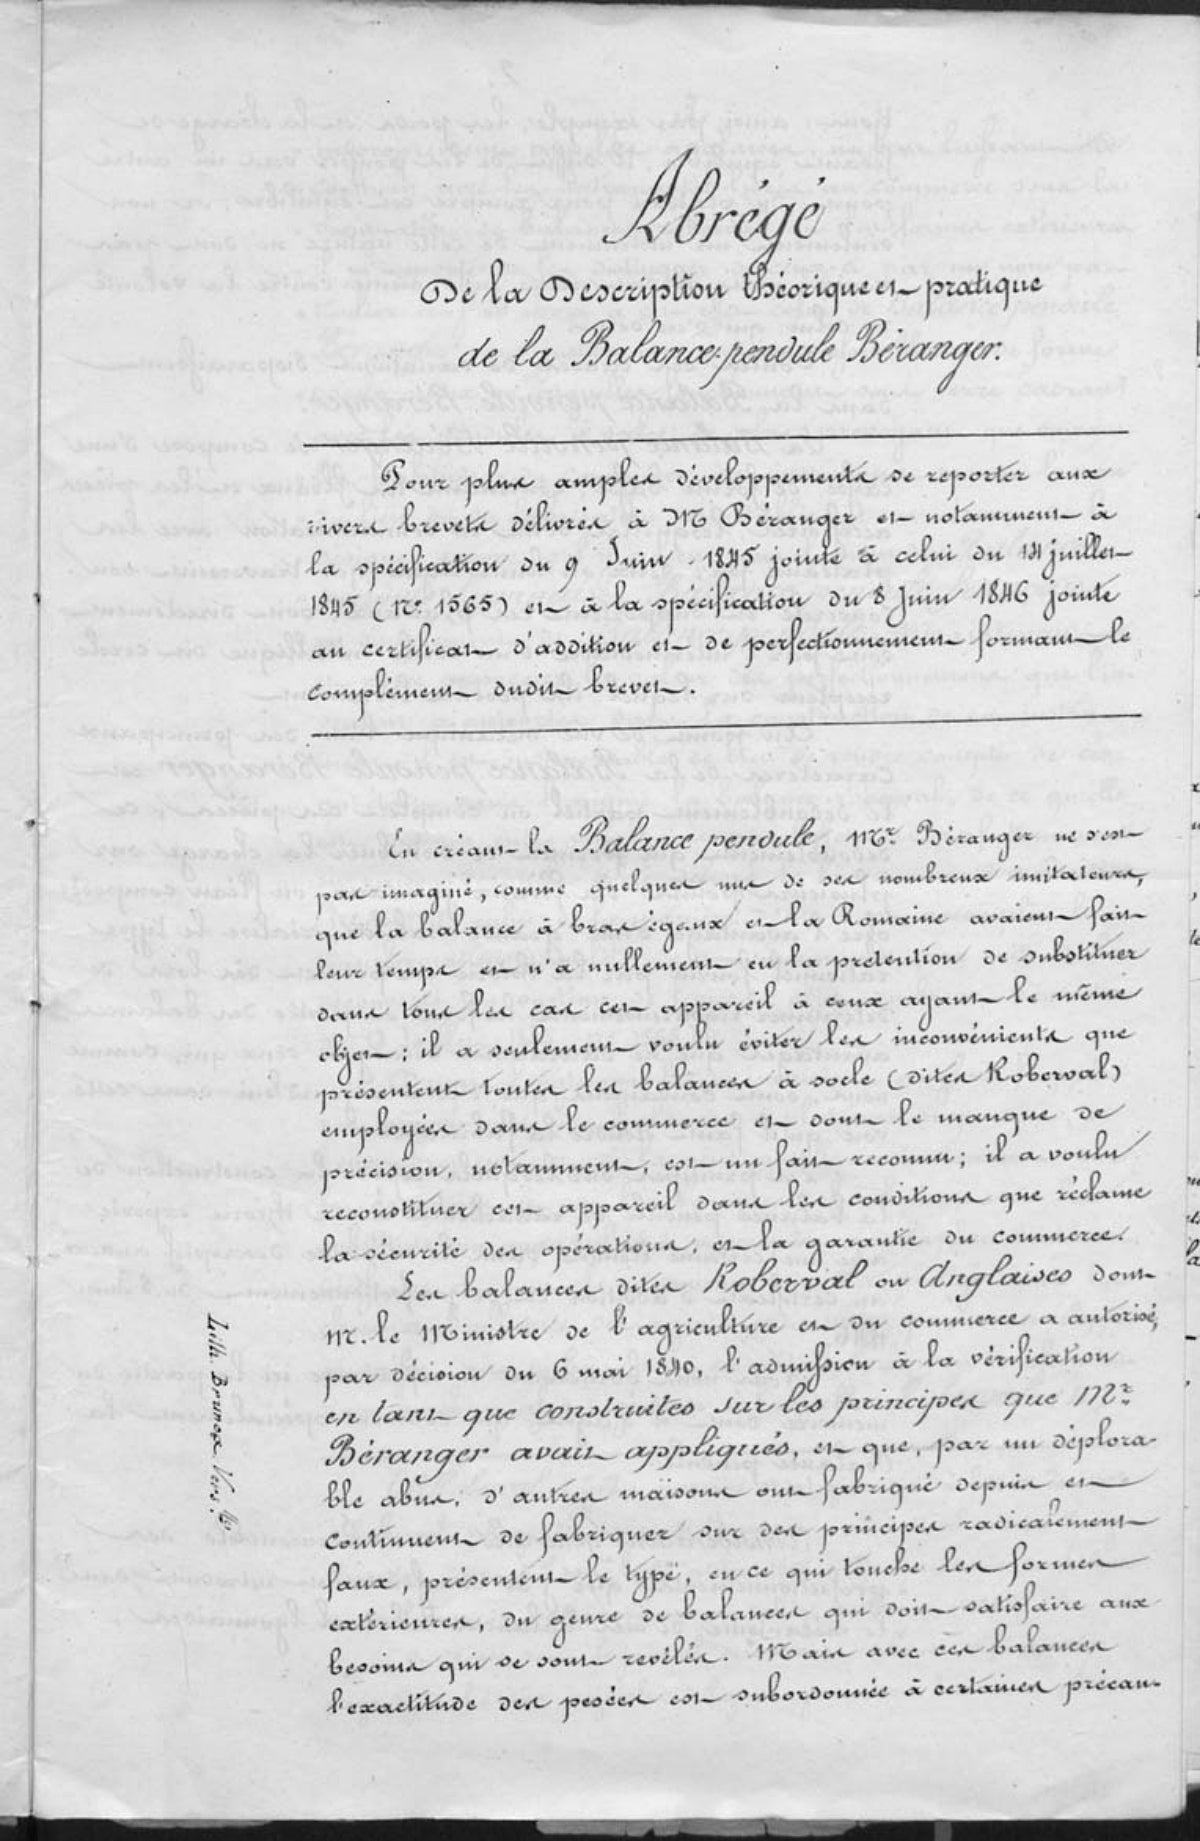 Abrégé
De la Description théorique et pratique
de la Balance-pendule Béranger.
Pour plus amples développements se reporter aux
divers brevets délivrés à M Béranger et notamment à
la spécification du 9 Juin 1845 jointe à celui du 14 juillet
1845 (No. 1565) et à la spécification du 8 Juin 1846 jointe
au certificat d'addition et de perfectionnement formant le
complément dudit brevet.
En créant la Balance pendule, Mr. Béranger ne s'est
pas imaginé, comme quelques uns de ses nombreux imitateurs,
que la balance à bras égaux et la Romaine avaient fait
leur temps et n'a nullement eu la pretention de substituer
dans tous les cas cet appareil à ceux ayant le même
objet ; il a seulement voulu éviter les inconvénients que
présentent toutes les balances à socle (dites Roberval)
employées dans le commerce et dont le manque de
précision, notamment, est un fait reconnu ; il a voulu
reconstituer cet appareil dans les conditions que réclame
la sécurité des opérations, et la garantie du commerce.
Les balances dites Roberval ou Anglaises dont
M. le Ministre de l'agriculture et du commerce a autorisé,
par décision du 6 mai 1840, l'admission à la vérification
en tant que construites sur les principes que Mr.
Béranger avait appliqués, et que, par un déplora-
ble abus, d'autres maisons ont fabriqué depuis et
continuent de fabriquer sur des principes radicalement
faux, présentent le type, en ce qui touche les formes
extérieures, du genre de balances qui doit satisfaire aux
besoins qui se sont revélés. Mais avec ces balances
l'exactitude des pesées est subordonnée à certaines précau-
Lith. Brunet